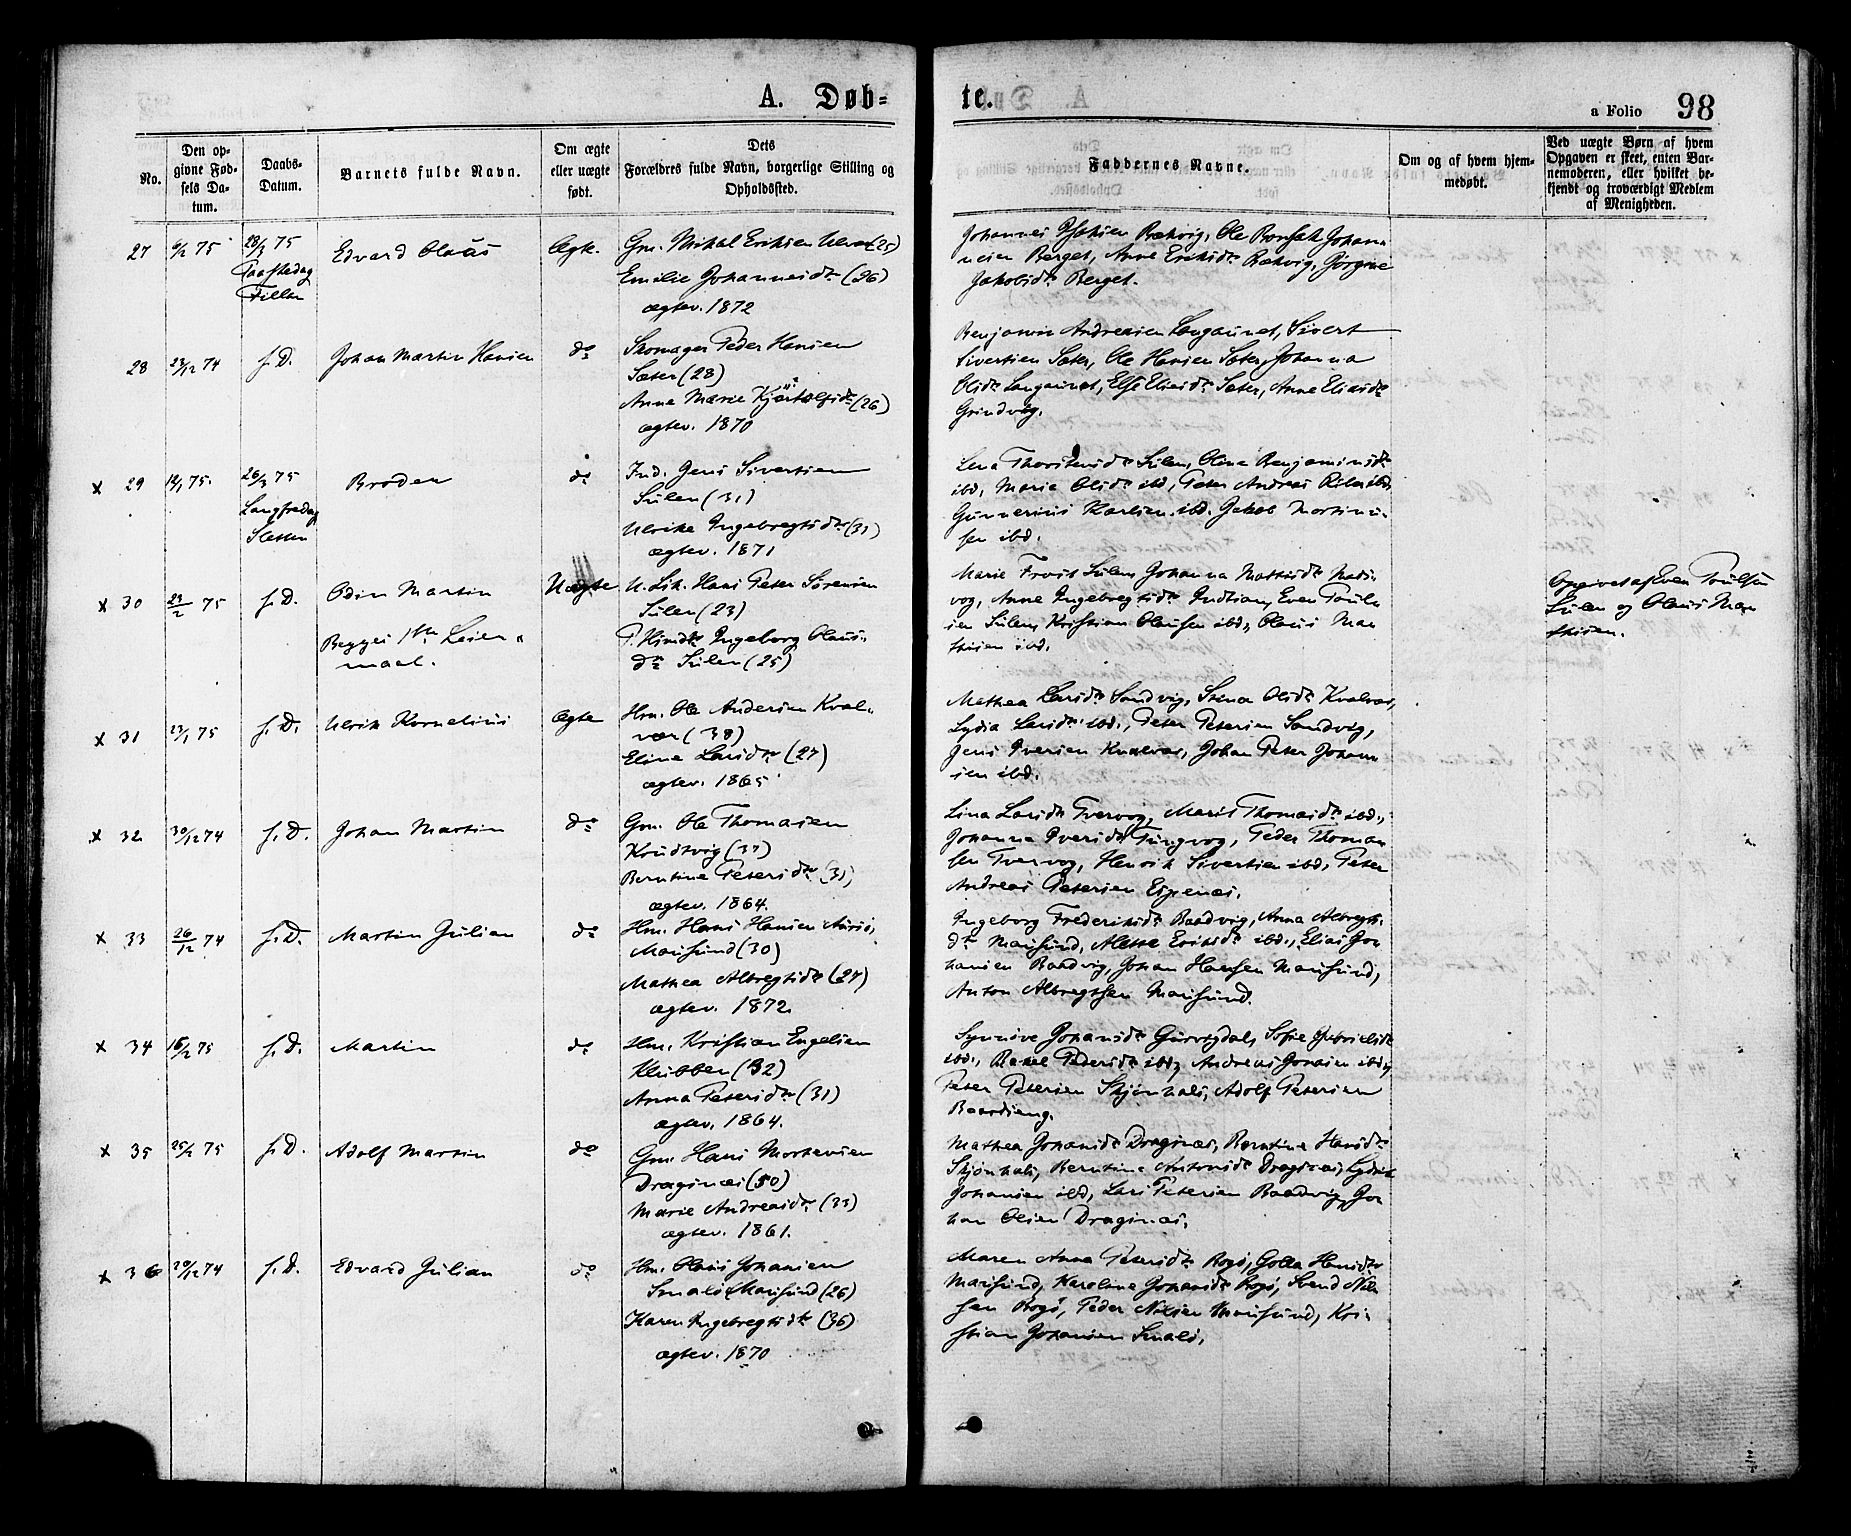 A. Døb=
te.
a Folio 98
No.
Den op-
givne Fød-
sels Da-
tum.
Daabs-
Datum.
Barnets fulde Navn.
Om ægte
eller uægte
født.
Dets
Forældres fulde Navn, borgerlige Stilling og
Opholdssted.
Faddernes Navne.
Om og af hvem hjem-
medøbt.
Ved uægte Børn af hvem
Opgaven er skeet, enten Bar-
nemoderen, eller hvilket be-
kjendt og troværdigt Medlem
af Menigheden.
27 6/2 75 28/3 75 Edvard Olaus Ægte. Gm. Mikal Eriksen Ulvøe (25)
Paaskedag
Fillan
Emilie Johannesdtr (26)
ægtev. 1872
Johannes Rækvig, Ole Johan
nesen Berget, Anne Eriksdtr Rækvig, Jørgine
Jakobsdtr Berget.
28 23/12 74 s. D. Johan Martin Hansen do Skomager Peder Hansen
Sæter (28)
Anne Marie (26)
ægtev. 1870
Benjamin Andreasen Langaunet, Sivert
Sivertsen Sæter, Ole Hansen Sæter, Johanna
Olsdtr Langaunet, Else Eliasdtr Sæter, Anne Eliasdtr
Grindvåg.
x 29 14/1 75. 26/3 75 Broder do Ind. Jens Sivertsen
Langfredag
Sletten
Sulen (31)
Ulrike Ingebregtsdtr (31)
ægtev. 1871
Lena Sulen, Oline Benjaminsdtr
ibd, Marie Olsdtr ibd, Peter Andreas ibd,
Gunnerius Karlsen ibd. Jakob Martinu-
sen ibd.
x 30 23/2 75 s. D. Odin Martin Uægte U. Sk. Hans Peter Sørensen
Sulen (23)
Begges 1ste Leier-
maal.
P. Kvinde Ingeborg Olaus-
dtr Sulen (25)
Marie Sulen, Johanna
vog, Anne Ingebregtsdtr Indtian, Even Pauls
sen Sulen, Kristian Olausen ibd, Olaus Ma
thisen ibd.
Opgivet af Even Poulsen
Sulen og Olaus Ma
thisen.
x 31 23/1 75 s. D. Ulrik Kornelius Ægte Hm. Ole Andersen Kval-
vær (38)
Eline Larsdtr (27)
ægtev. 1865
Mathea Larsdtr Sandvig, Stina Olsdtr Kvalvær,
Lydia Larsdtr ibd., Peter Petersen Sandvig,
Jens Iversen Kvalvær, Johan Peter Johann
sen ibd.
x 32 30/12 74 s. D. Johan Martin do Gm. Ole Thomasen
Knudtvig (31)
Berntine Petersdtr (31)
ægtev. 1864.
Lina Larsdtr Tvervog, Marit Thomasdtr ibd.,
Johanna Iversdtr Tungvog, Peder Thoma
sen Tvervog, Henrik Sivertsen ibd, Peter
Andreas Petersen Espenæs.
x 33 26/12 74 s. D. Martin Julian do Hm. Hans Hansen
Marisund (30)
Mathea Albregtsdtr (27)
ægtev. 1872.
Ingeborg Frederiksdtr Baadvig, Anna Albregts-
dtr Marisund, Alette Eriksdtr ibd., Elias Jo
hansen Baadvig, Johan Hansen Marisund,
Anton Albregtsen Marisund.
x 34 16/2 75 s. D. Martin do Hm. Kristian Engelsen
Klubben (32)
Anna Petersdtr (31)
ægtev. 1864.
Synnøve Johansdtr Sofie Gabrielsdtr
ibd., Rakel Pedersdtr ibd, Andreas Jonsen ibd,
Peter Petersen Skjønhals, Adolf Petersen
Baardseng.
x 35 25/2 75 s. D. Adolf Martin do Gm. Hans Mortensen
Dragsnæs (50)
Marie Andreasdtr (33)
ægtev. 1861.
Mathea Johansdtr Dragsnæs, Berntine Hansdtr
Skjønhals, Berntine Antonsdtr Dragsnæs,
Johansen ibd, Lars Petersen Baadvig, Jo
han Olsen Dragsnæs.
x 36 20/12 74 s. D. Edvard Julian do Hm. Olaus Johansen
Smalø Marisund (26)
Karen Ingebregtsdtr (36)
ægtev. 1870
Maren Anna Petersdtr Bogø, Golla Hansdtr
Marisund, Karoline Johansdtr Bogø, Svend Nil
sen Bogø, Peder Nilsen Marisund, Kri-
stian Johansen Smalø.